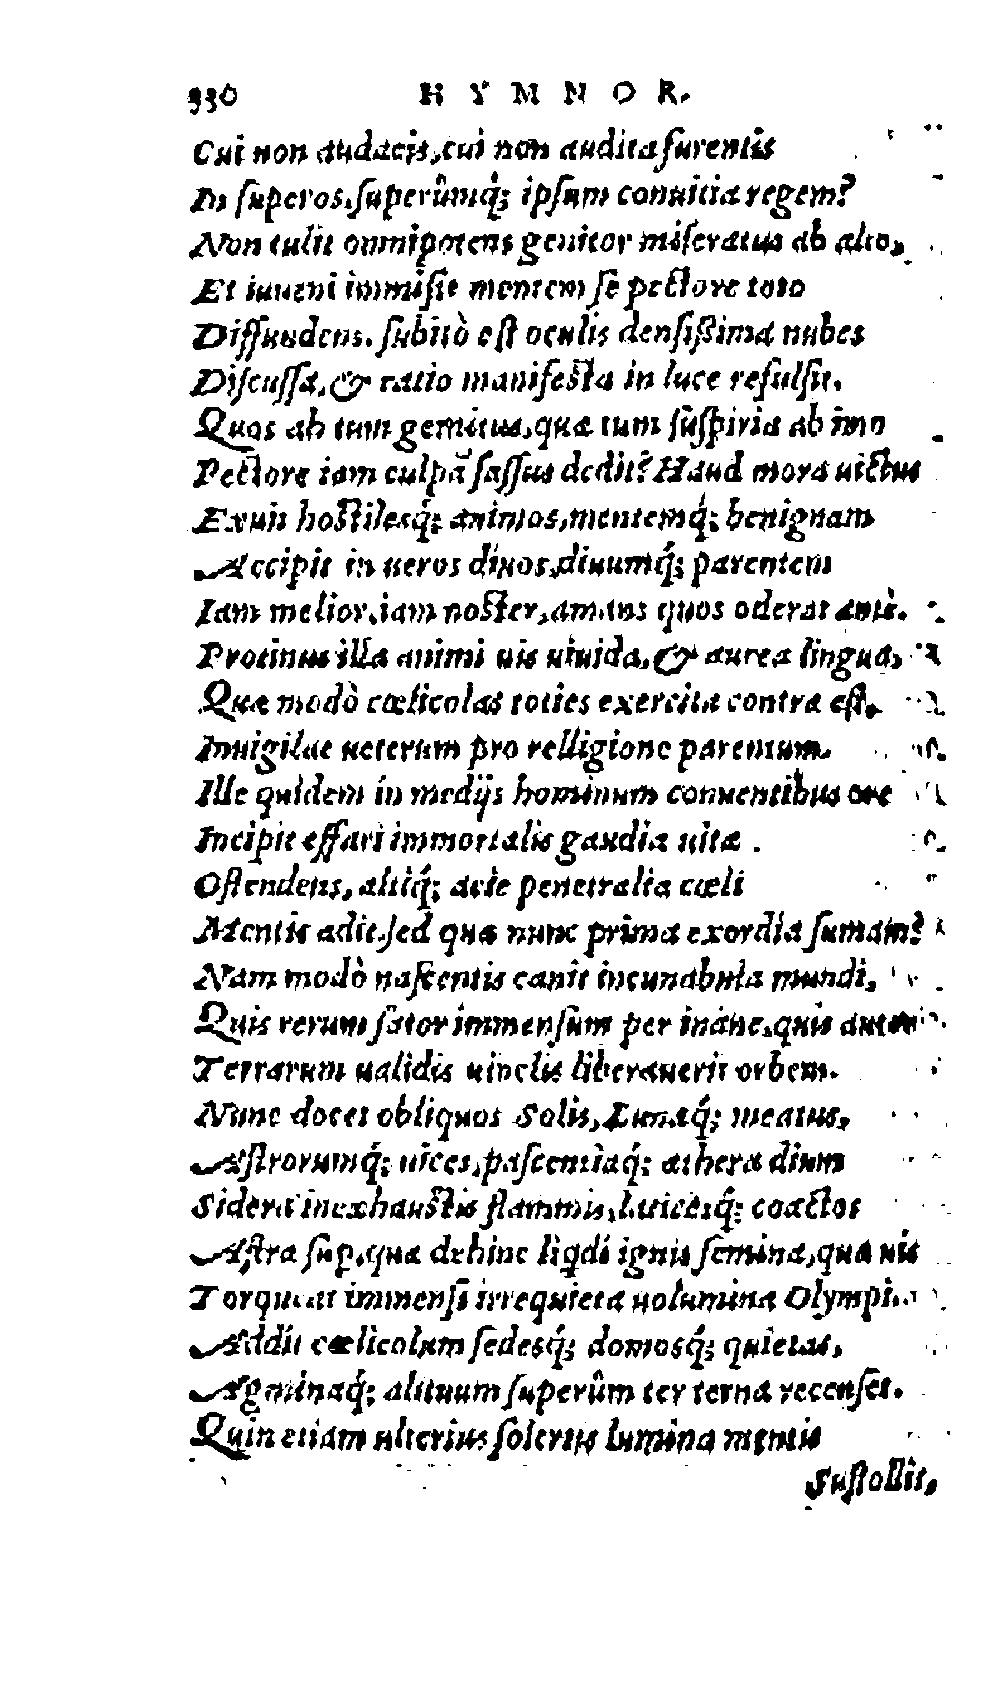 330 HYMNOR.
Cui non audacis, cui non audita furentis
In ſuperos, ſuperûmq́; ipſum conuitia regem?
Non tulit omnipotens genitor miſeratus ab alto,
Et iuueni immiſit mentem ſe pectore toto
Diffundens. ſubitò eſt oculis denſißima nubes
Diſcuſſa, & ratio manifeſta in luce refulſit.
Quos ab tum gemitus, quæ tum ſuſpiria ab imo
Pectore iam culpā faſſus dedit? Haud mora uictus
Exuit hoſtilesq́; animos, mentemq́; benignam
Accipit in ueros diuos, diuumq́; parentem
Iam melior, iam noſter, amans quos oderat antè.
Protinus illa animi uis uiuida, & aurea lingua,
Quæ modò cœlicolas toties exercita contra eſt,
Inuigilat ueterum pro relligione parentum.
Ille quidem in medijs hominum conuentibus ore
Incipit effari immortalis gaudia uitæ.
Oſtendens, altiq́; acie penetralia cœli
Mentis adit. ſed quæ nunc prima exordia ſumam?
Nam modò naſcentis canit incunabula mundi,
Quis rerum ſator immenſum per inane, quis autor
Terrarum ualidis uinclis liberauerit orbem.
Nunc docet obliquos Solis, Lunæq́; meatus,
Aſtrorumq́; uices, paſcentiaq́; æthera dium
Sidera inexhauſtis flammis, coactos
Aſtra ſup, quæ dehinc liqdi ignis ſemina, quæ uis
Torqueat immenſi irrequieta uolumina Olympi.
Addit cœlicolum ſedesq́; domosq́; quietas,
Agminaq́; alituum ſuperûm ter terna recenſet.
Quin etiam ulterius ſolertis lumina mentis
Suſtollit,